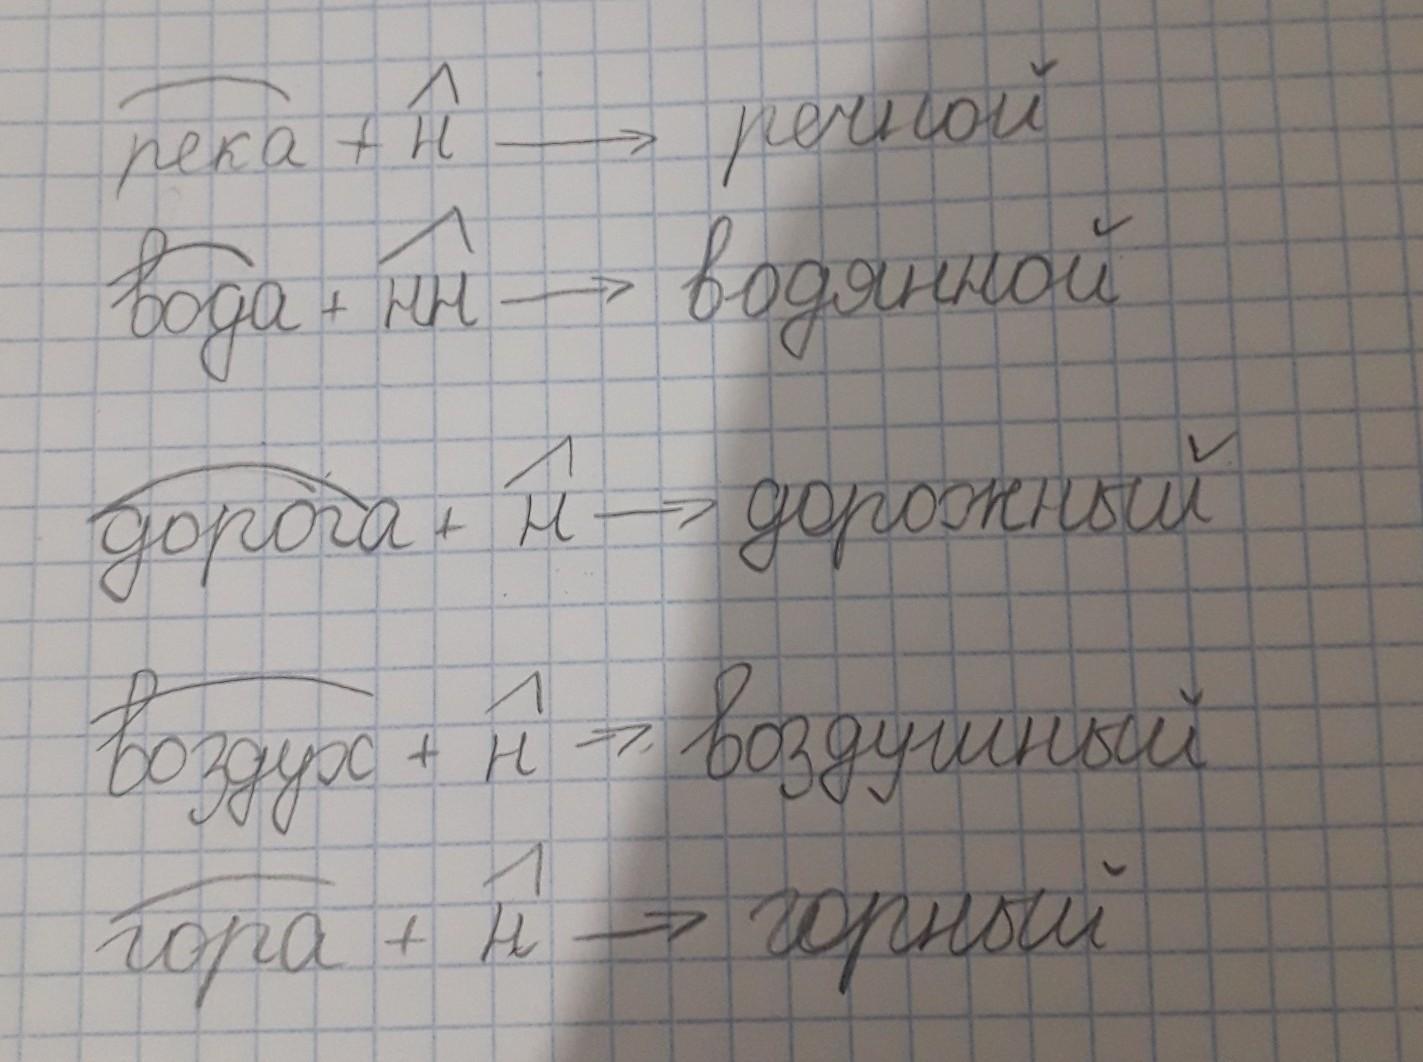 река + н → речной
вода + нн → водянной
дорога + н → дорожный
воздух + н → воздушный
гора + н → горный